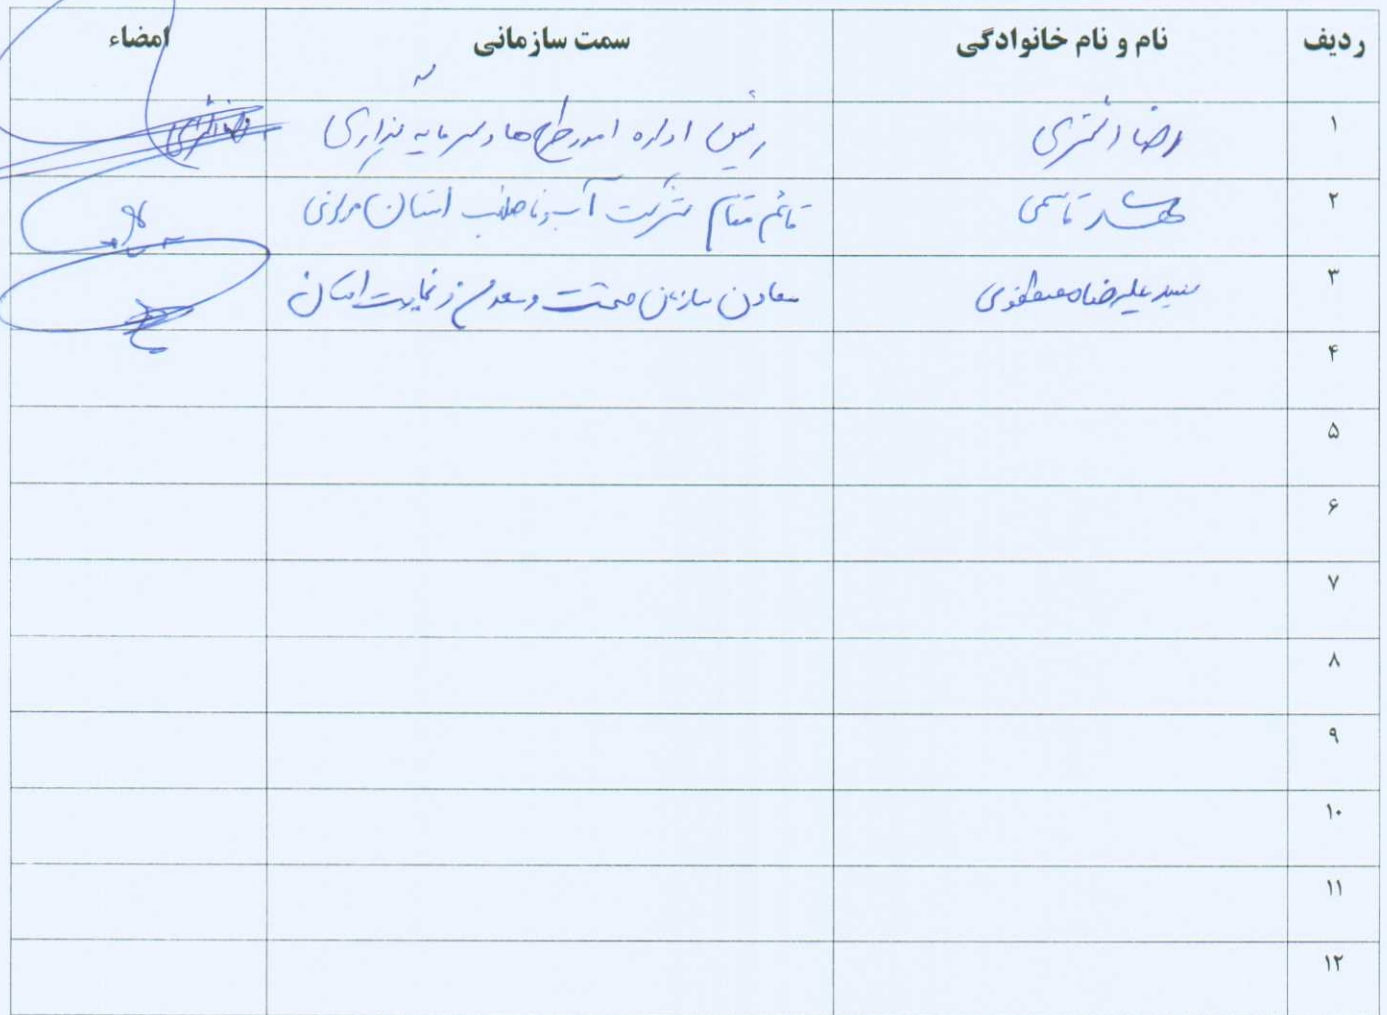 ردیف نام و نام خانوادگی سمت سازمانی امضاء
۱ رضا اشتری رئیس اداره امور طرح ها و سرمایه گذاری
۲ قاسمی قائم مقام شرکت آب و فاضلاب استان مرکزی
۳ سید علیرضا مصطفوی معاون سازمان صنعت و معدن استان
۴
۵
۶
۷
۸
۹
۱۰
۱۱
۱۲